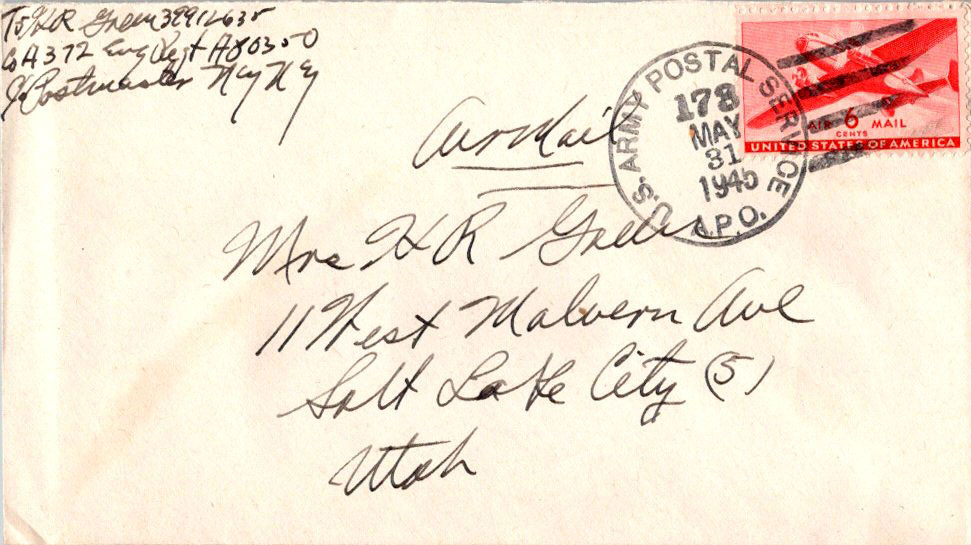 T5 H R Green 39912635
Co A 372 Eng Regt APO 350
% Postmaster N Y N Y
Air Mail
U.S. ARMY POSTAL SERVICE
173
MAY
31
1945
A.P.O.
AIR 6 MAIL
CENTS
UNITED STATES OF AMERICA
Mrs H R Green
11 West Malvern Ave
Salt Lake City (5)
Utah